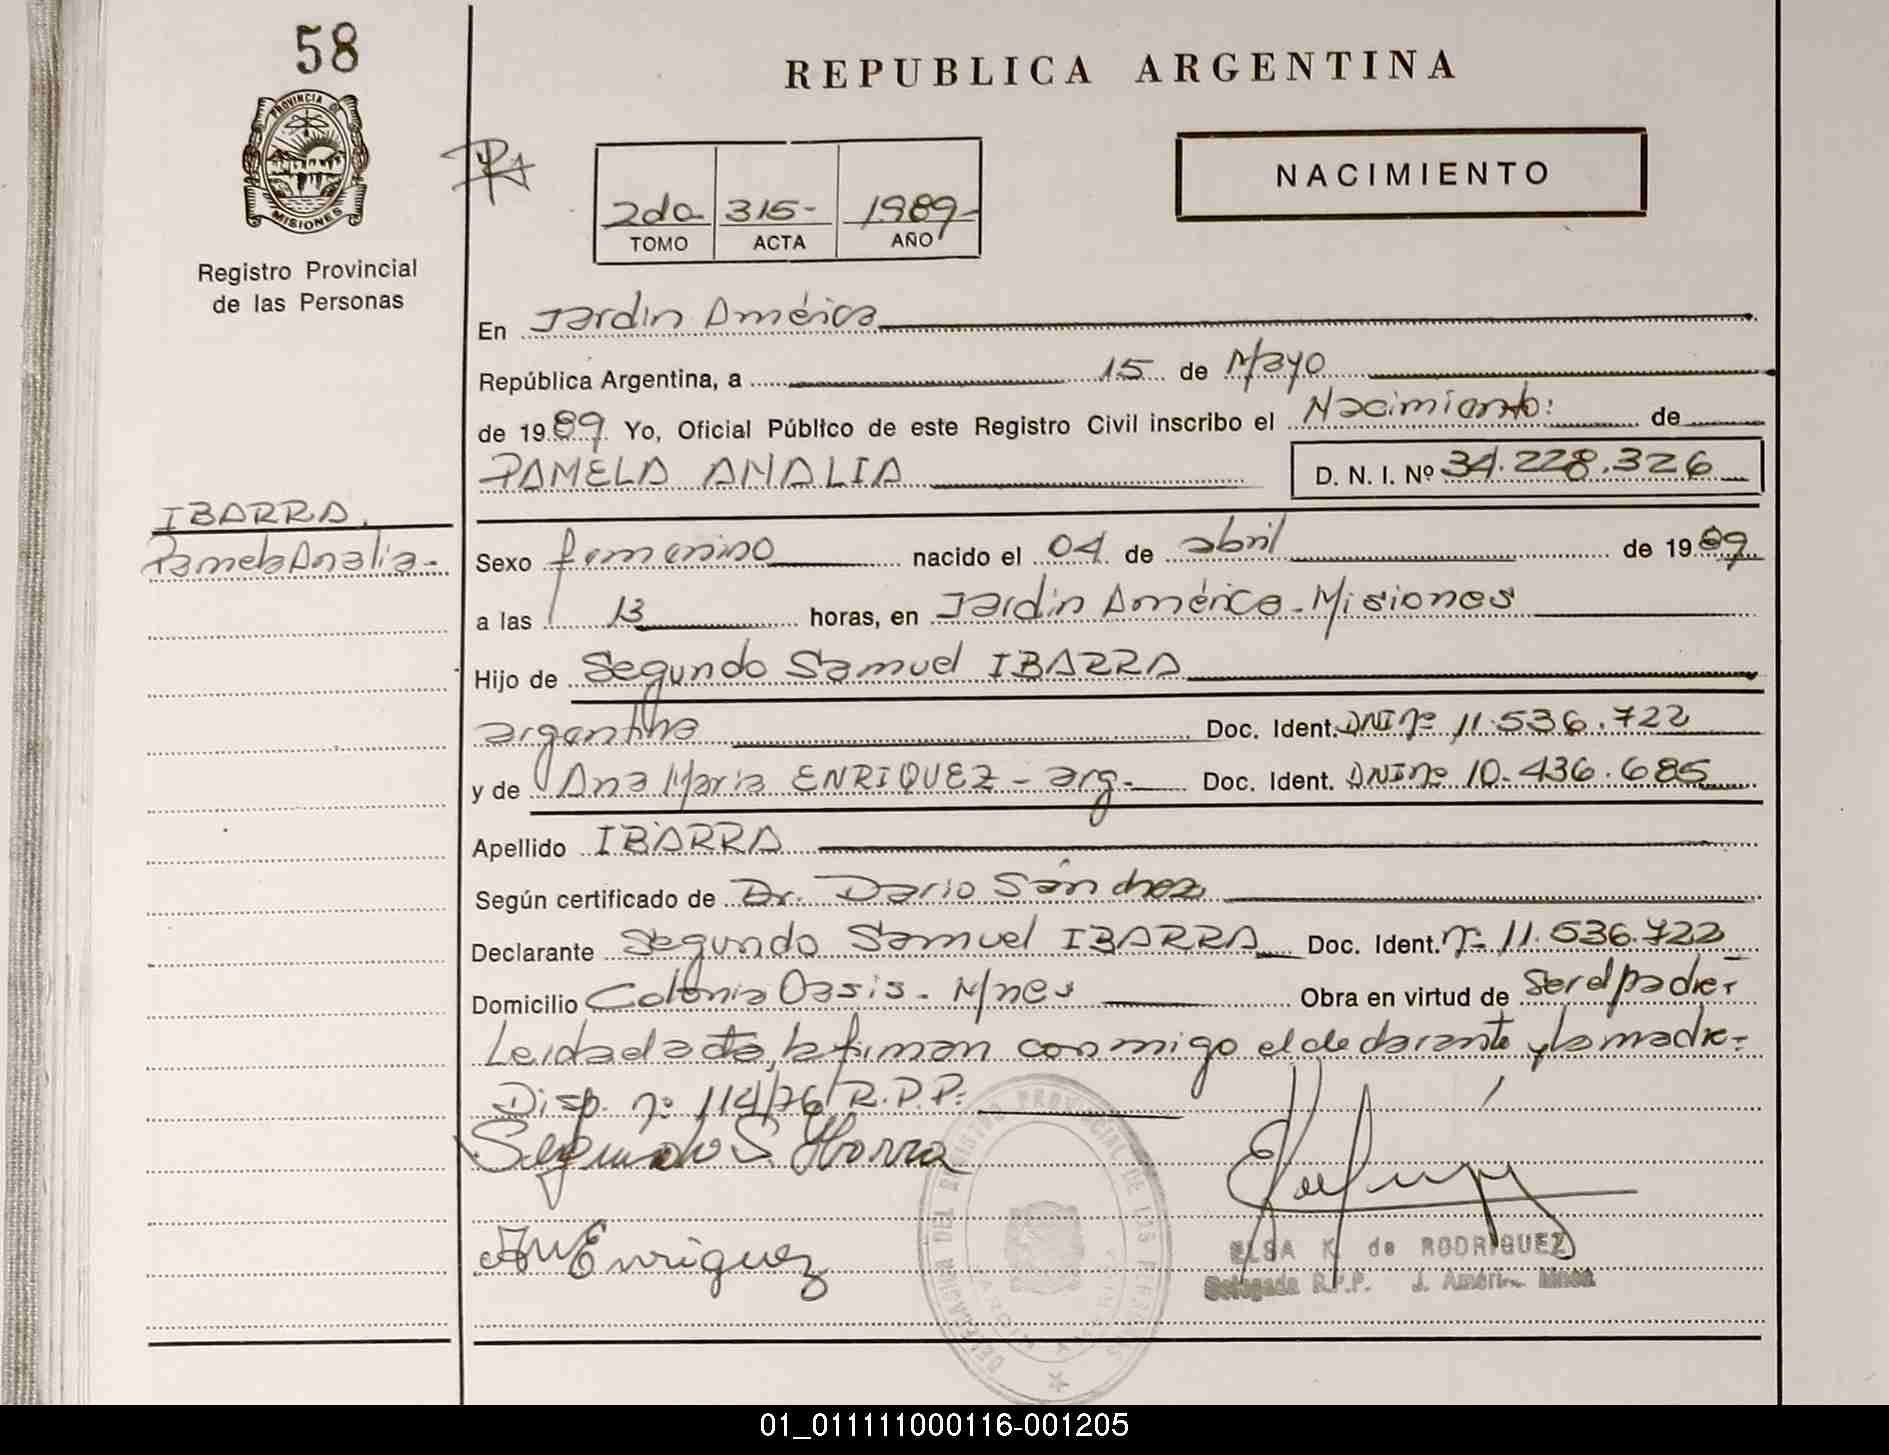 58
REPUBLICA ARGENTINA
PROVINCIA DE
MISIONES
Registro Provincial
de las Personas
2da 315- 1989-
TOMO ACTA AÑO
NACIMIENTO
En Jardín América
República Argentina, a 15 de Mayo
de 1989. Yo, Oficial Público de este Registro Civil inscribo el Nacimiento: de
PAMELA ANALIA D. N. I. Nº 34.228.326
IBARRA.
Pamela Analia-
Sexo femenino nacido el 04 de abril de 1989
a las 13 horas, en Jardín América-Misiones
Hijo de Segundo Samuel IBARRA
argentina Doc. Ident. DNI nº 11.536.722
y de Ana Maria ENRIQUEZ - arg.- Doc. Ident. DNI nº 10.436.685
Apellido IBARRA
Según certificado de Dr. Dario Sánchez
Declarante Segundo Samuel IBARRA Doc. Ident. nº 11.536.722
Domicilio Colonia Oasis. Mnes Obra en virtud de ser el padre-
Leída el acta, la firman conmigo el declarante y la madre-
Disp. nº 114/76/R.P.P.
Segundo S. Ibarra
AMEnriquez
ELSA K. de RODRIGUEZ
Delegada R.P.P. J. América Mnes
DELEGACION DEL REGISTRO PROVINCIAL DE LAS PERSONAS
01_011111000116-001205